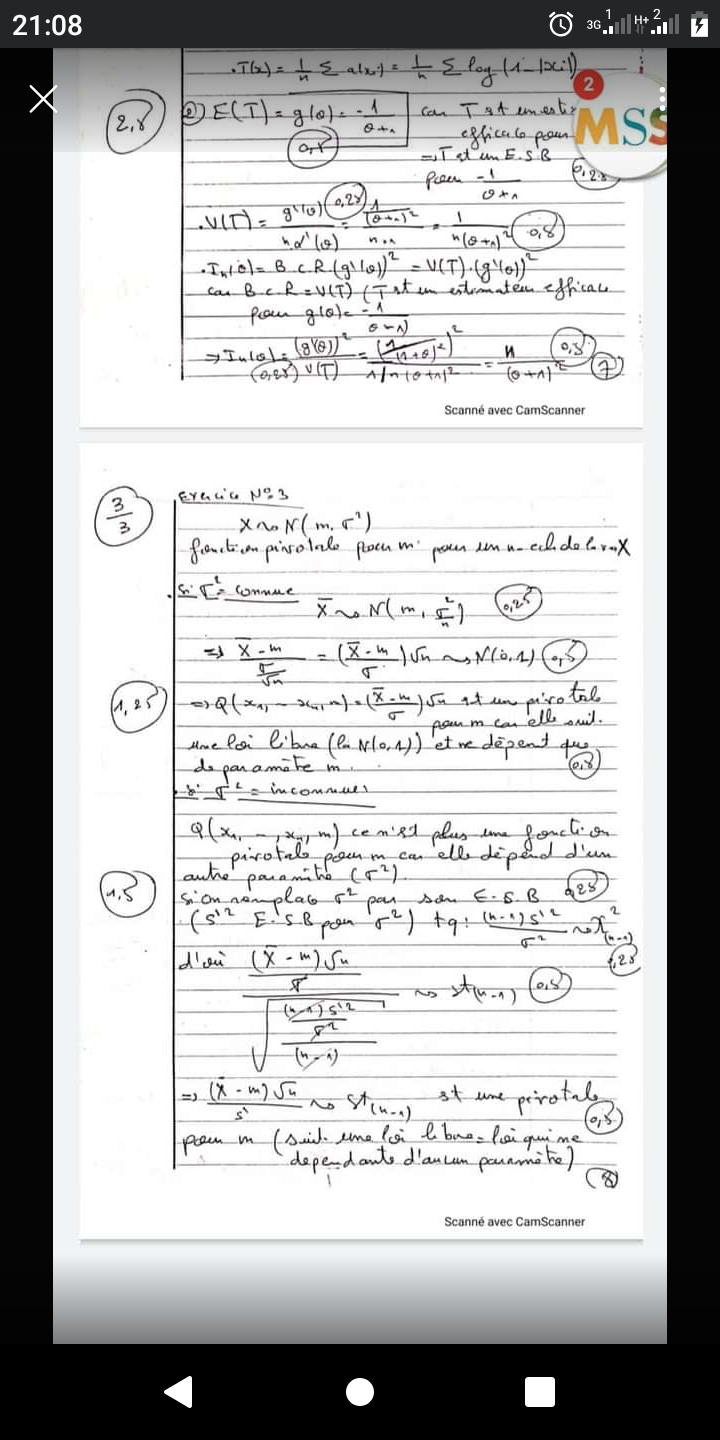 21:08
3G 1 H+ 2
.T(x) = 1/n Σ a(xi) = 1/n Σ log (1-|xi|)
2
MSS
2) E(T) = g(θ) = -1/(θ+1) car T est un esti
2,5
efficace pour
0,5
=> T est un E.S.B
pour -1/(θ+1) 0,25
.V(T) = g'(θ)/(n α'(θ)) 0,25 = 1/(θ+1)²/(n.1) = 1/(n(θ+1)²) 0,5
.In(θ) = B.C.R (g'(θ))² = V(T).(g'(θ))²
car BCR = V(T) (T est un estimateur efficace
pour g(θ) = -1/(θ+1))
=> In(θ) = (g'(θ))²/V(T) = (1/(1+θ)²)²/(1/n(θ+1)²) = n/(θ+1)² 0,5
0,25 7
Scanné avec CamScanner
Exercice N°3
3/3
X ~> N(m, σ²)
fonction pivotale pour m pour un n-ech de la v.a X
. Si σ² = connue
X̄ ~> N(m, σ²/n) 0,25
=> (X̄-m)/(σ/√n) = ((X̄-m)/σ)√n ~> N(0,1) 0,5
1,25
=> Q(x1, - xn, m) = ((X̄-m)/σ)√n est un pivotale
pour m car elle suit
une loi libre (la N(0,1)) et ne dépent que
de paramètre m. 0,5
. Si σ² = inconnues
Q(x1, -, xn, m) ce n'est plus une fonction
pivotale pour m car elle dépend d'un
autre paramètre (σ²).
1,5
si on remplace σ² par son E.S.B 0,25
(S'² E.S.B pour σ²) tq: (n-1)S'²/σ² ~> χ²(n-1)
0,25
d'où ((X̄-m)√n/σ)/√(((n-1)S'²/σ²)/(n-1)) ~> St(n-1) 0,5
=> (X̄-m)√n/S' ~> St(n-1) est une pivotale
0,5
pour m (suit une loi libre = loi qui ne
dependante d'aucun paramètre)
8
Scanné avec CamScanner